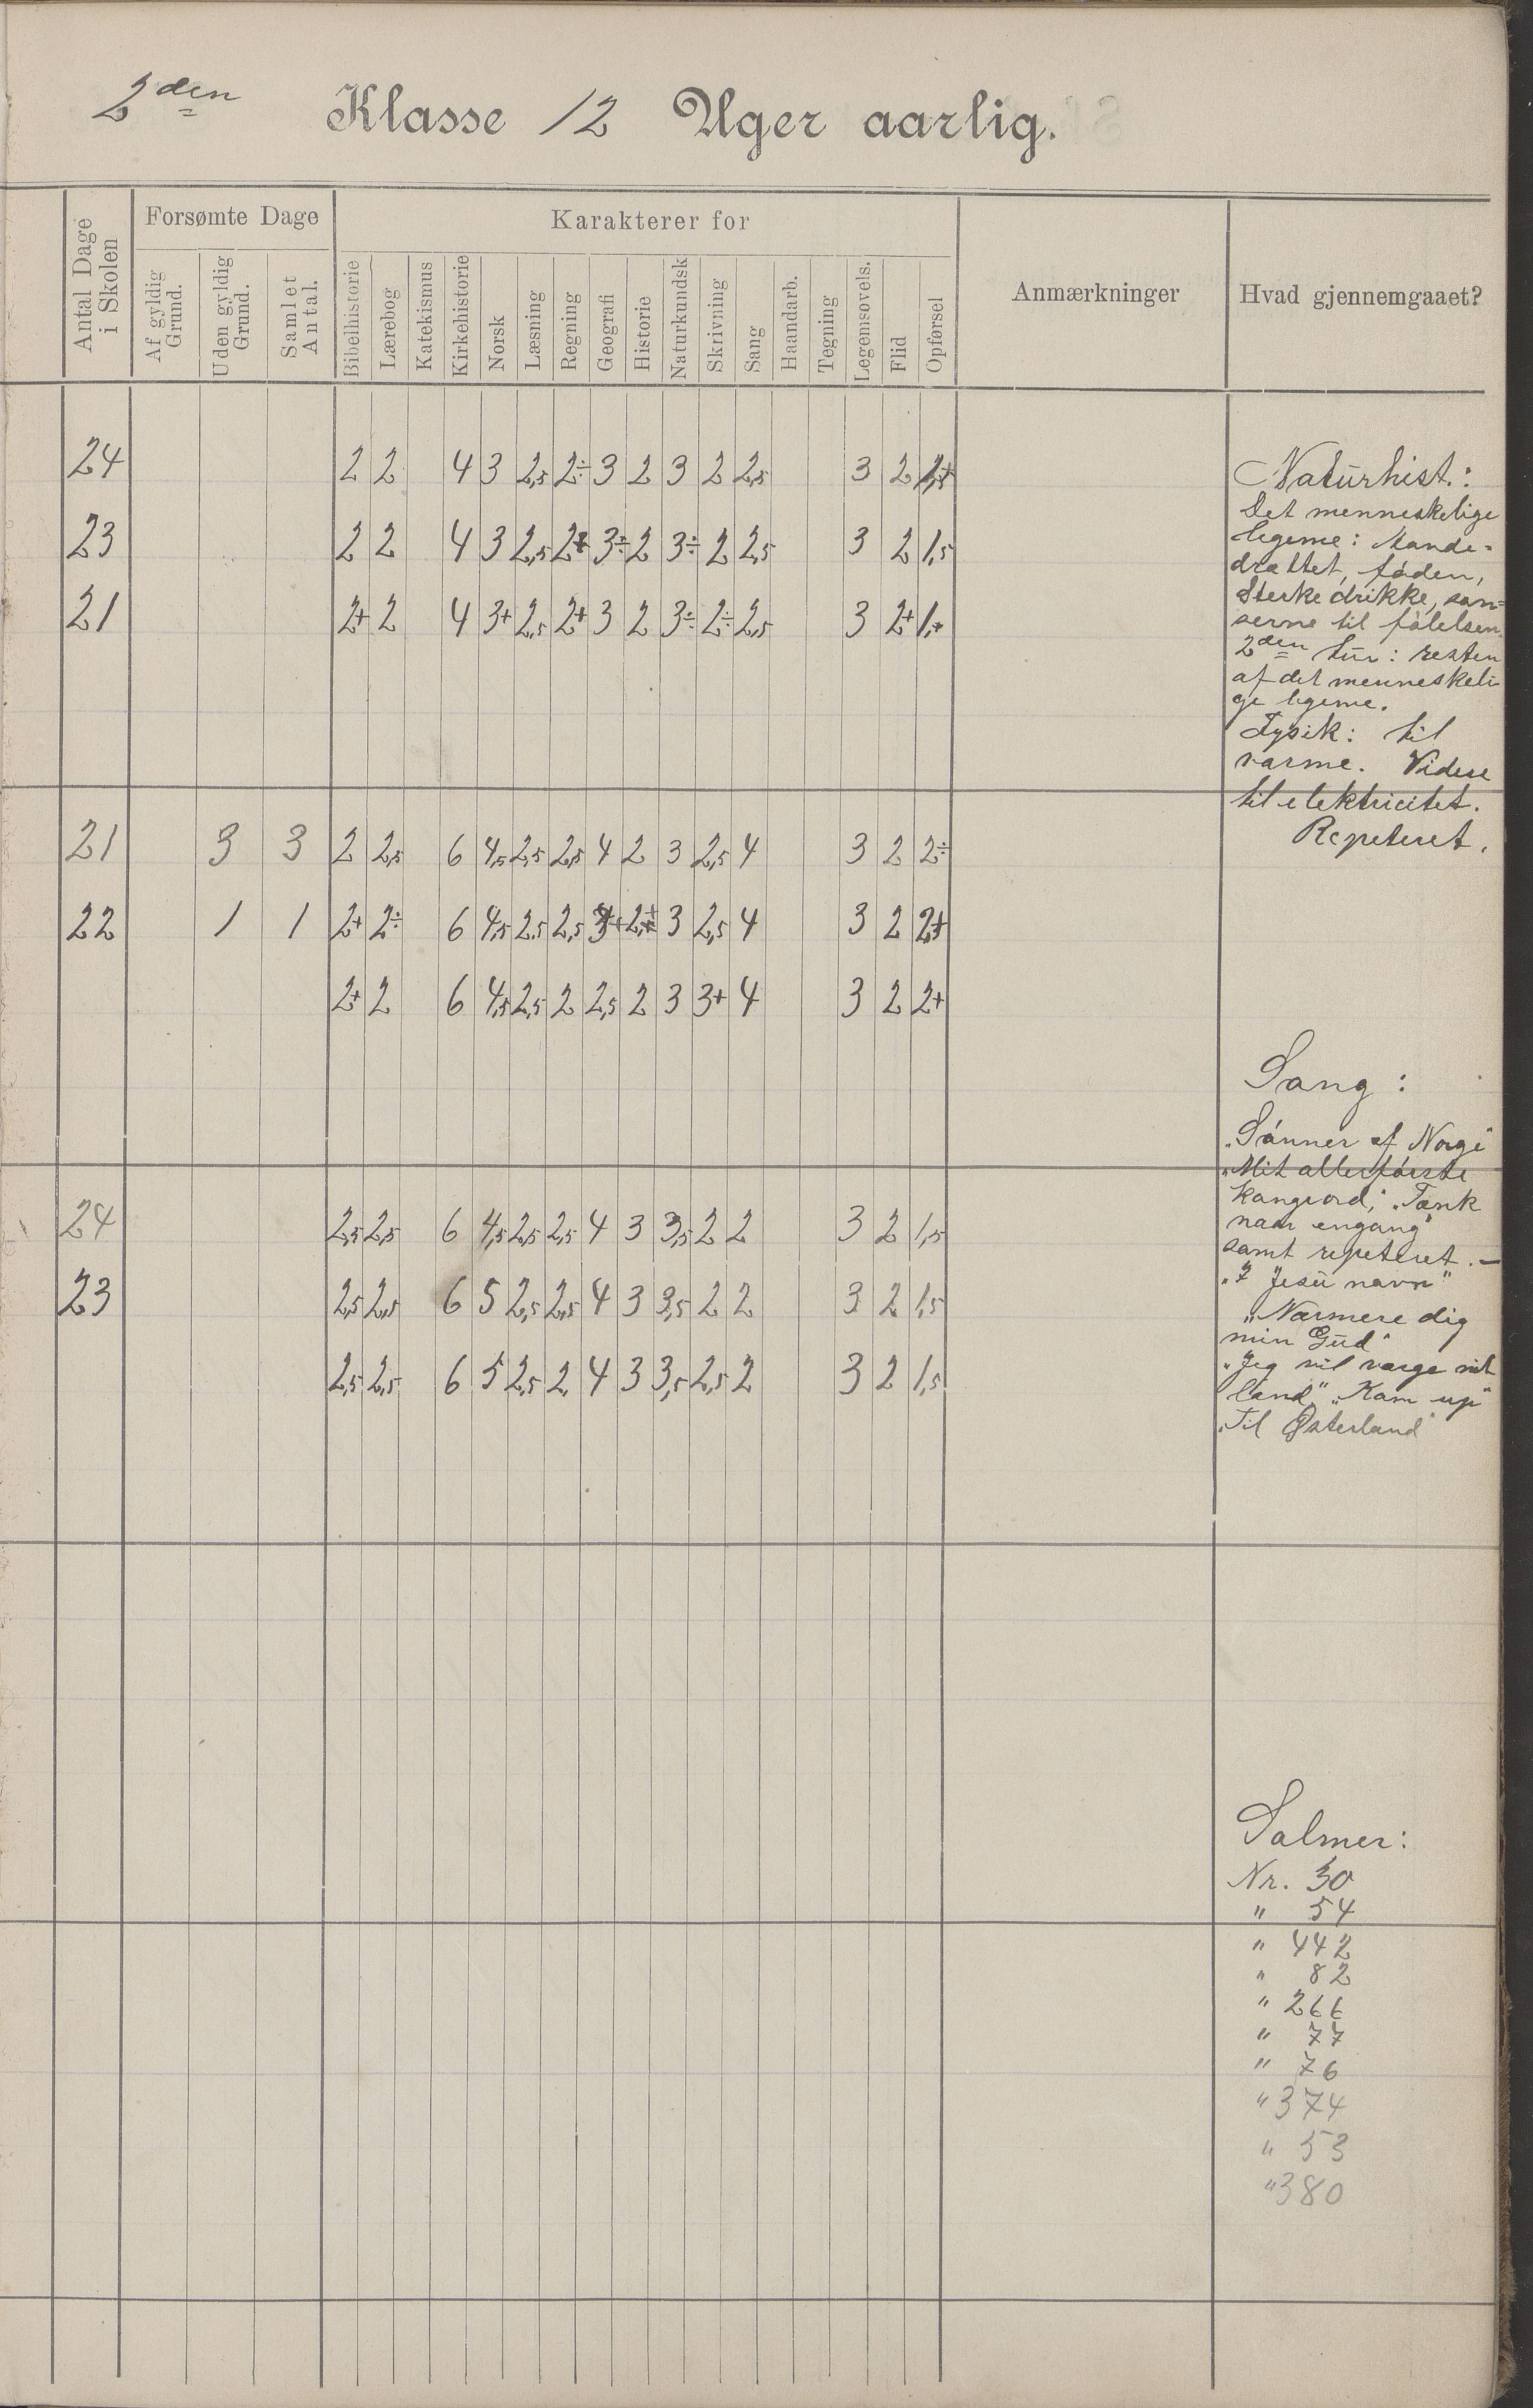 2den Klasse 12 Uger aarlig.
Antal Dage i Skolen
Forsømte Dage
Af gyldig Grund.
Uden gyldig Grund.
Samlet Antal.
Karakterer for
Bibelhistorie
Lærebog
Katekismus
Kirkehistorie
Norsk
Læsning
Regning
Geografi
Historie
Naturkundsk
Skrivning
Sang
Haandarb.
Tegning
Legemsøvels.
Flid
Opførsel
Anmærkninger
Hvad gjennemgaaet?
24 2 2 4 3 2,5 2÷ 3 2 3 2 2,5 3 2
23 2 2 4 3 2,5 3÷ 2 3÷ 2 2,5 3 2 1,5
21 2+ 2 4 3+ 2,5 2+ 3 2 3÷ 2÷ 2,5 3 2+
21 3 3 2 2,5 6 4,5 2,5 2,5 4 2 3 2,5 4 3 2 2÷
22 1 1 2+ 2÷ 6 4,5 2,5 2,5 3 2,5 4 3 2
2+ 2 6 4,5 2,5 2 2,5 2 3 3+ 4 3 2 2+
24 2,5 2,5 6 4,5 2,5 2,5 4 3 3,5 2 2 3 2 1,5
23 2,5 2,5 6 5 2,5 2,5 4 3 3,5 2 2 3 2 1,5
2,5 2,5 6 5 2,5 2 4 3 3,5 2,5 2 3 2 1,5
Naturhist.:
Det menneskelige
legeme: Aande-
drættet, føden,
sterke drikke, san-
serne til følelsen.
2den tur: resten
af det menneskeli-
ge legeme.
Fysik: til
varme. Videre
til elektricitet.
Repeteret.
Sang:
"Sønner af Norge"
"Mit allerførste
"Tænk
naar engang"
samt repeteret. —
"I Jesu navn"
"Nærmere dig
min Gud"
"Jeg vil værge mit
land", "Kom up"
"Til Østerland"
Salmer:
Nr. 30
" 54
" 442
" 82
" 266
" 77
" 76
" 374
" 53
" 380